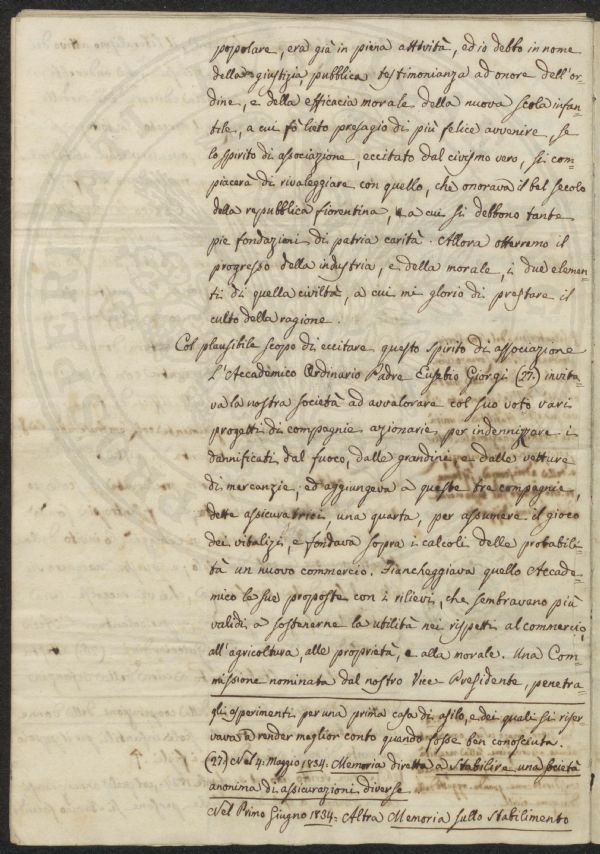 popolare, era già in piena attività, ed io debbo in nome
della giustizia pubblica testimonianza ad onore dell'or=
dine, e della efficacia morale della nuova scola infan=
tile, a cui fò lieto presagio di più felice avvenire, se
lo spirito di associazione, eccitato dal civismo vero, si com=
piacerà di rivaleggiare con quello, che onorava il bel secolo
della repubblica fiorentina, a cui si debbono tante
pie fondazioni di patria carità. Allora otterremo il
progresso della industria, e della morale, i due elemen=
ti di quella civiltà, a cui mi glorio di prestare il
culto della ragione.
Col plausibile scopo di eccitare questo spirito di associazione
L'Accademico Ordinario Padre Eusebio Giorgi (27.) invita=
va la nostra società ad avvalorare col suo voto vari
progetti di compagnie azionarie per indennizzare i
dannificati dal fuoco, dalle grandini e dalle vetture
di mercanzie, ed aggiungeva a queste tre compagnie,
dette assicuratrici, una quarta, per assumere il gioco
dei vitalizi, e fondava sopra i calcoli delle probabili=
tà un nuovo commercio. Fiancheggiava quello Accade=
mico le sue proposte con i rilievi, che sembravano più
validi a sostenerne la utilità nei rispetti al commercio,
all'agricoltura, alle proprietà, e alla morale. Una Com=
missione nominata dal nostro Vice Presidente, penetra=
gli esperimenti per una prima casa di asilo, e dei quali si riser=
vava a render meglior conto quando fosse ben conosciuta.
(27.) Nel 4. Maggio 1834. Memoria diretta a Stabilire una società
anonima di assicurazioni diverse
Nel Primo Giugno 1834. Altra Memoria sullo Stabilimento